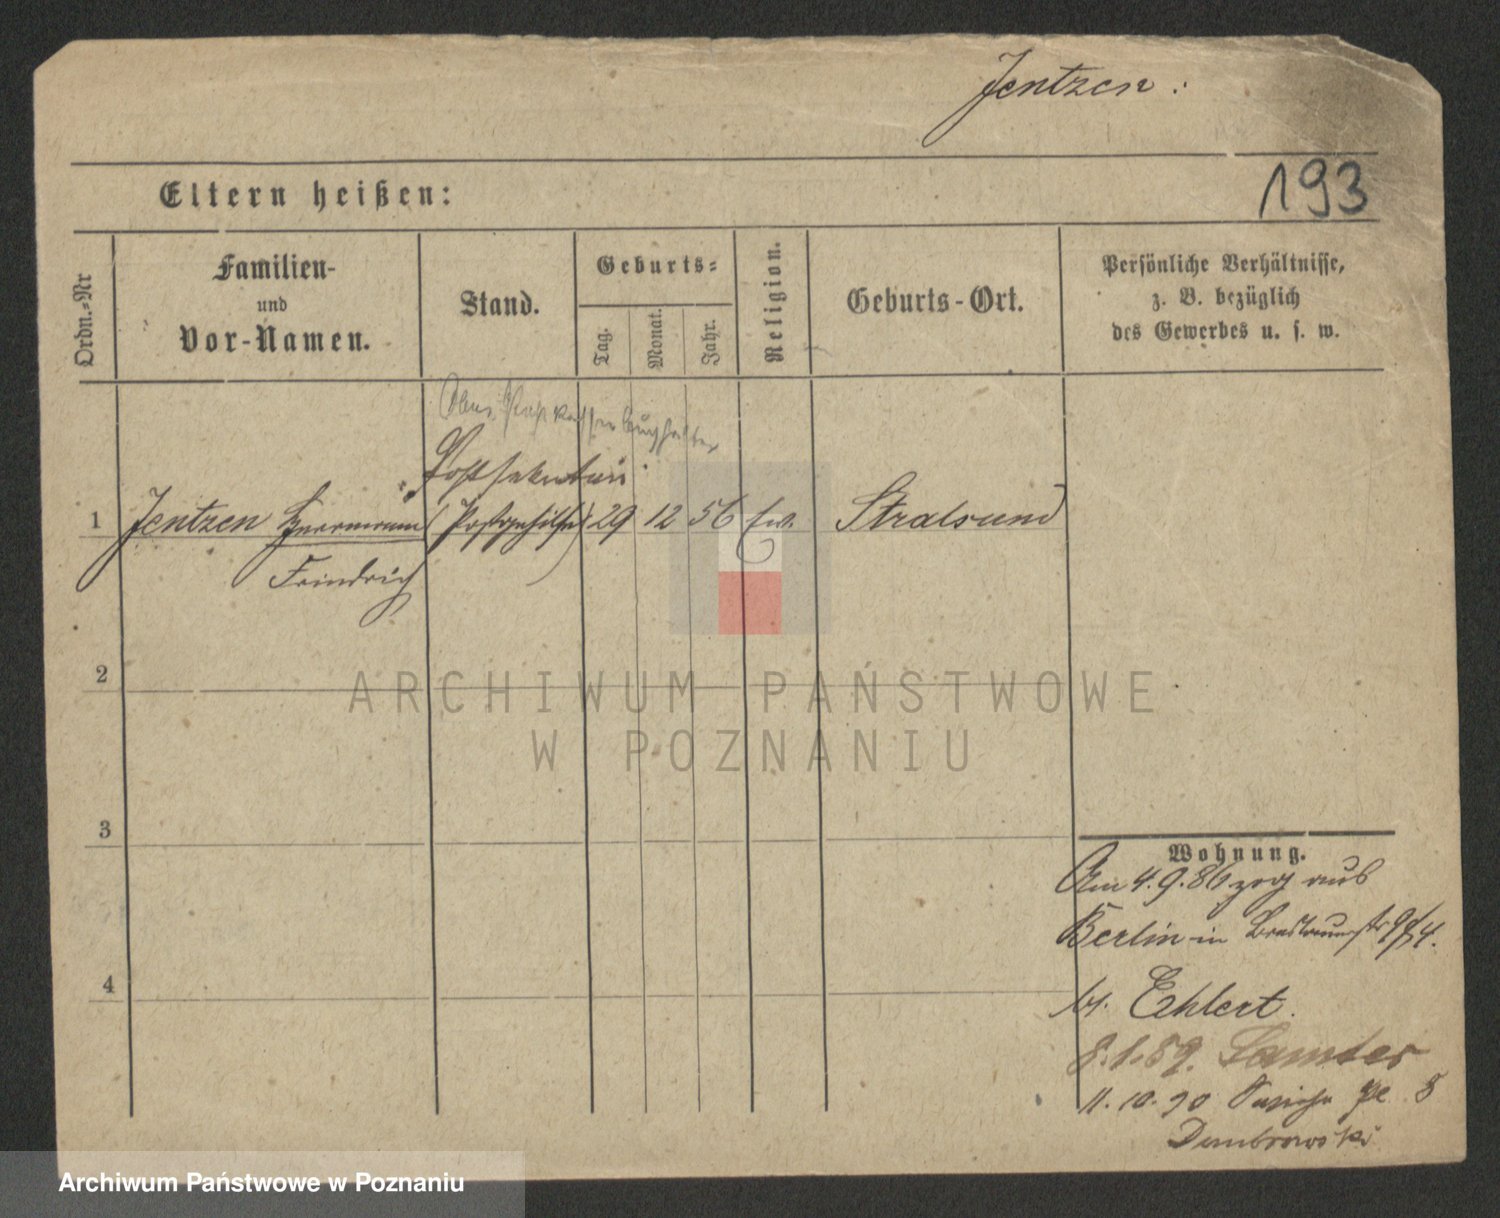 Jentzen.
193
Eltern heißen:
Ordn.-Nr
Familien-
und
Vor-Namen.
Stand.
Geburts-
Tag.
Monat.
Jahr.
Religion.
Geburts-Ort.
Persönliche Verhältnisse,
z. B. bezüglich
des Gewerbes u. s. w.
Ober Postkassenbuchhalter
Postsekretair
1 Jentzen Herrmann (Postgehilfe) 29 12 56 ev. Stralsund
Friedrich
2
ARCHIWUM PAŃSTWOWE
W POZNANIU
3
4
Wohnung.
Am 4.9.86 zog aus
Berlin in
bei Ehlert.
8.1.89. Samter
11.10.90 Pl 8
Dombrowski
Archiwum Państwowe w Poznaniu